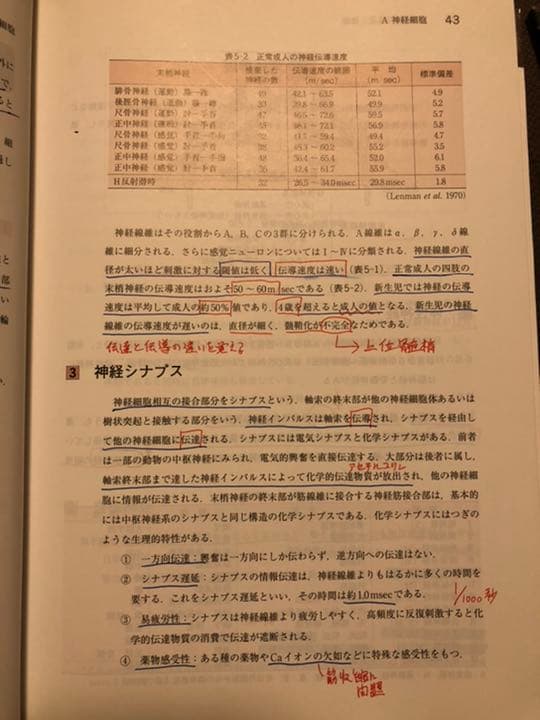 A 神経細胞 43
表5-2 正常成人の神経伝導速度
末梢神経 検査した神経の数 伝導速度の範囲(m/sec) 平均(m/sec) 標準偏差
腓骨神経（運動） 膝―踝 49 42.1~63.5 52.1 4.9
後脛骨神経（運動） 膝―踝 39.8~66.9 49.9 5.2
尺骨神経（運動） 肘―手首 46.5~72.6 59.5 5.7
正中神経（運動） 肘―手首 56.9 5.8
尺骨神経（感覚） 49.4 4.7
尺骨神経（感覚） 肘―手首 60.2 55.2 3.5
正中神経（感覚） 56.4~65.4 52.0 6.1
正中神経（感覚） 肘―手首 42.4~61.7 55.9 5.8
H反射潜時 26.5~34.0msec 29.8msec 1.8
(Lenman et al. 1970)
神経線維はその役割からA，B，Cの3群に分けられる．A線維はα，β，γ，δ線
維に細分される．さらに感覚ニューロンについてはⅠ～Ⅳに分類される．神経線維の直
径が太いほど刺激に対する閾値は低く，伝導速度は速い（表5-1）．正常成人の四肢の
末梢神経の伝導速度はおよそ50～60m/secである（表5-2）．新生児では神経の伝導
速度は平均して成人の約50％値であり，4歳を超えると成人の値となる．新生児の神経
線維の伝導速度が遅いのは，直径が細く，髄鞘化が不完全なためである．
伝達と伝導の違いを覚える
3 神経シナプス
神経細胞相互の接合部分をシナプスという．軸索の終末部が他の神経細胞体あるいは
樹状突起と接触する部分をいう．神経インパルスは軸索を伝導され，シナプスを経由し
て他の神経細胞に伝達される．シナプスには電気シナプスと化学シナプスがある．前者
は一部の動物の中枢神経にみられ，電気的興奮を直接伝達する．大部分は後者に属し，
アセチルコリン
軸索終末部まで達した神経インパルスによって化学的伝達物質が放出され，他の神経細
胞に情報が伝達される．末梢神経の終末部が筋線維に接合する神経筋接合部は，基本的
には中枢神経系のシナプスと同じ構造の化学シナプスである．化学シナプスにはつぎの
ような生理的特性がある．
① 一方向伝達：興奮は一方向にしか伝わらず，逆方向への伝達はない．
② シナプス遅延：シナプスの情報伝達は，神経線維よりもはるかに多くの時間を
要する．これをシナプス遅延といい，その時間は約1.0msecである．
1/1000秒
③ 易疲労性：シナプスは神経線維より疲労しやすく，高頻度に反復刺激すると化
学的伝達物質の消費で伝達が遮断される．
④ 薬物感受性：ある種の薬物やCaイオンの欠如などに特殊な感受性をもつ．
筋収縮に
問題